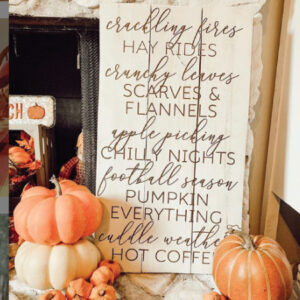 crackling fires
HAY RIDES
crunchy leaves
SCARVES &
FLANNELS
apple picking
CHILLY NIGHTS
football season
PUMPKIN
EVERYTHING
cuddle weather
HOT COFFEE